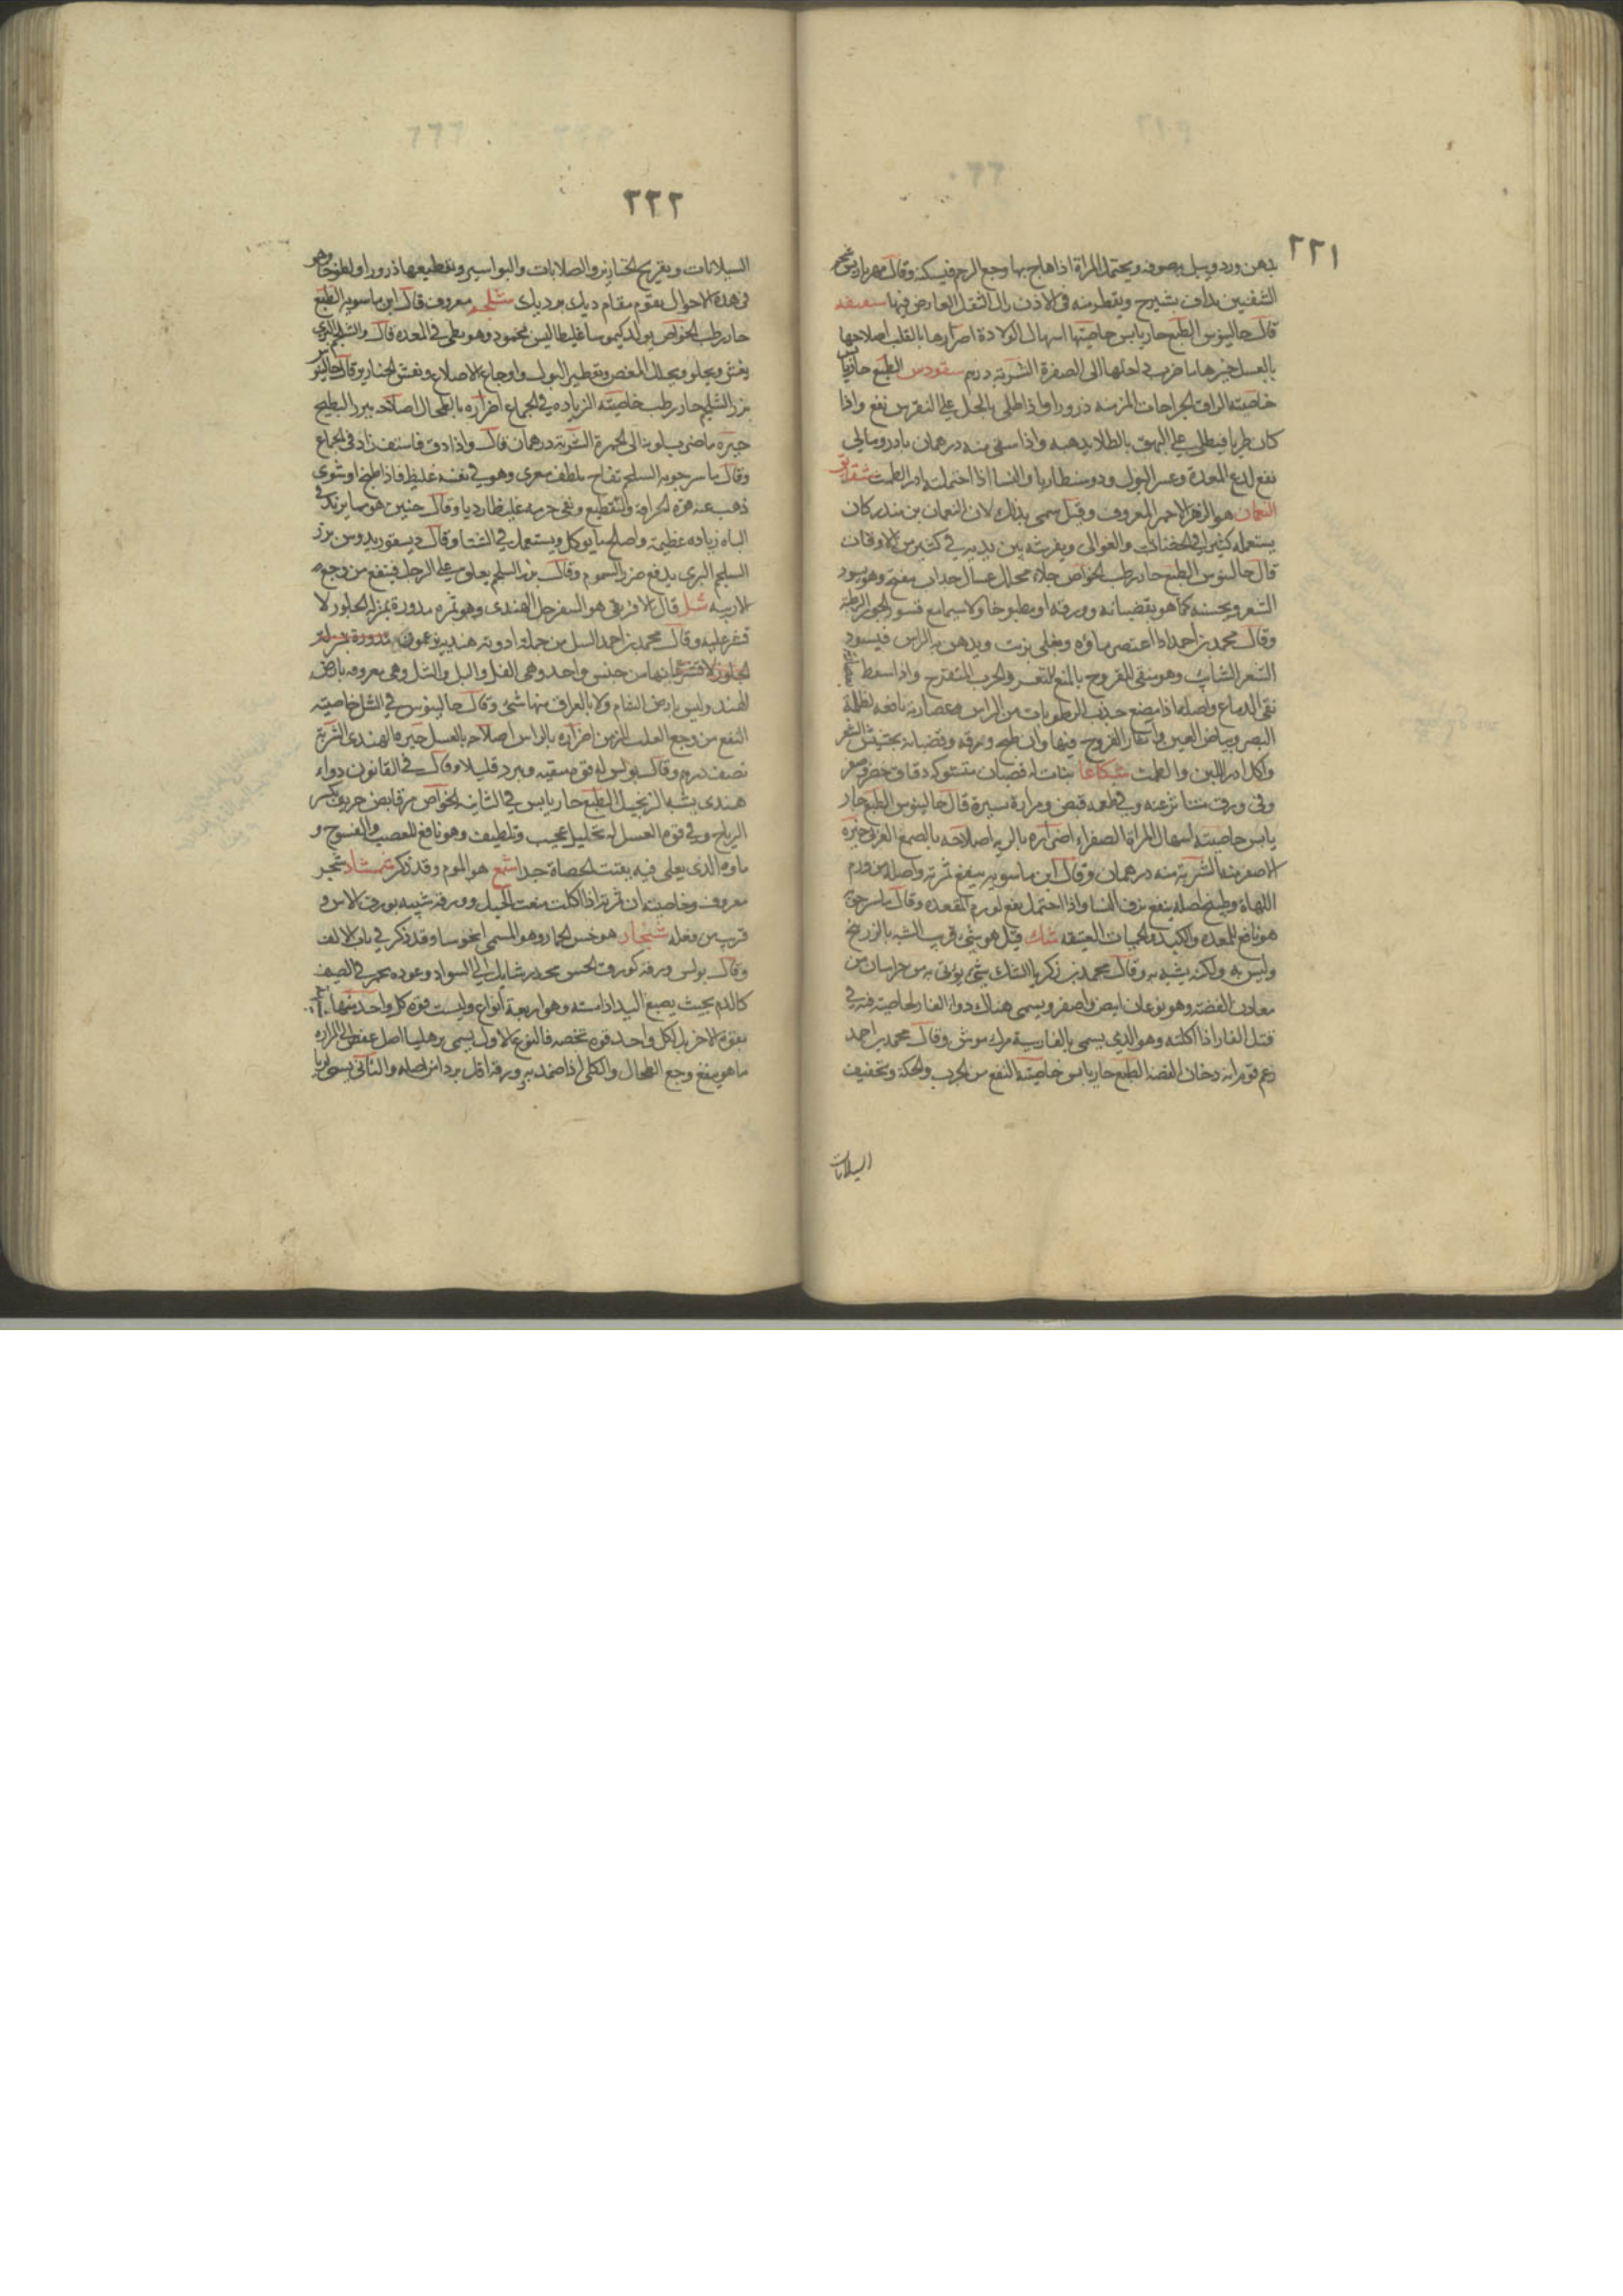 ٢٢١
بدهن ورد ويبل به صوفه ويحتمل المراة اذا هاج بها وجع الرحم فيسكنه وقال
الشفنين يداف بشيرج ويقطر منه فى الاذن زال الثقل العارض فيها
قال جالينوس الطبع حار يابس خاصيتها اسهال الولادة اضرارها بالقلب اصلاحها
بالعسل خيرها ما ضرب فى اختها الى الصفرة الشربة درهم سقودس الطبع حار يابس
خاصيته الزاق الجراحات المزمنه ذرورا واذا طلى بالخل على النقرس نفع واذا
كان طريا فيطلى على البهق بالطلا يذهبه واذا سقى منه درهمان بادرومالي
نفع لدغ المعدة وعسر البول ودوسنطاريا والنسا اذا احتملته ادر الطمث شقايق
النعمان هو الزهر الاحمر المعروف وقيل سمى بذلك لان النعمان بن منذر كان
يستعمله كثيرا فى الخضابات والغوالى ويفرشه بين يديه فى كثير من الاوقات
قال جالينوس الطبع حار رطب الخواص جلاء محلل غسال جذاب مفتح وهو يسود
الشعر ويحسنه كما هو بقضبانه وورقه او مطبوخا ولا سيما مع قشور الجوز الرطبة
وقال محمد بن احمد اذا اعتصر ماؤه ويغلى بزيت ويدهن به الراس فيسود
الشعر الشايب وهو منقى للقروح بالمنع للتقعر والجرب المتقرح واذا سعط
نقى الدماغ واصله اذا مضغ جذب الرطوبات من الراس وعصارته نافعه لظلمة
البصر وبياض العين واثار القروح فيها وان طبخ ورقه وقضبانه
واكل ادر اللبن والطمث شكاعا نبات له قضبان متشوكه دقاق خضر
قال جالينوس الطبع حار
يابس خاصيته اسهال المراة الصفراء اضراره بالريه اصلاحه بالصمغ العربى خيره
الاصفر منه الشربة منه درهمان وقال ابن ماسويه ينفع ثمرته واصله من ورم
اللهاة وطبيخ اصله ينفع نزف النسا واذا احتمل نفع لورم المقعده وقال ماسرجويه
هو نافع للمعده والكبد والحميات العتيقه شك قيل هو شئ قريب الشبه بالزرنيخ
وليس به ولكنه يشبه به وقال محمد بن زكريا الشك شئ يؤتى به من خراسان من
معادن الفضة وهو نوعان ابيض واصفر ويسمى هناك دواء الفار لخاصيته فيه فى
قتل الفار اذا اكلته وهو الذي يسمى بالفارسية مرك موش وقال محمد بن احمد
زعم قوم انه دخان الفضة الطبع حار يابس خاصيته النفع من الجرب والحكة وتجفيف
السيلانات
٢٢٢
السيلانات وتقريح الخنازير والصلابات والبواسير وتقطيعها ذرورا ولطوخا وهو
فى هذه الاحوال يقوم مقام ديك برديك شلجم معروف قال ابن ماسويه الطبع
حار رطب الخواص يولد كيموسا غليظا ليس بمحمود وهو بطى فى المعده قال والشلجم البرى
يغثى ويجلو ويحلل المغص وتقطير البول واوجاع الاضلاع ونفش الخنازير وقال جالينوس
بزر الشلجم حار رطب خاصيته الزياده فى الجماع اضراره بالطحال اصلاحه ببزر البطيخ
خيره ما ضرب بلونه الى الحمرة الشربة درهمان قال واذا دق فاستف زاد فى الجماع
وقال ماسرجويه السلجم نفاخ ملطف مغرى وهو فى نفسه غليظ فاذا طبخ او شوى
ذهب عنه قوة الحرافة والتقطيع وبقى جرمه غليظا رديا وقال حنين هو مما يزيد فى
الباه زياده عظيمة واصلح ما يوكل ويستعمل فى الشتا وقال ديسقوريدوس بزر
السلجم البرى يدفع ضرر السموم وقال بزر السلجم يعلق على الرجل فينفع من وجع
الاربيه شل قال الافريقى هو السفرجل الهندى وهو ثمره مدورة بمنزلة الجلوز لا
قشر عليه وقال محمد بن احمد الشل من جملة ادوية هندية يزعمون مدورة بمنزلة
الجلوز لا قشر عليه انها من جنس واحد وهى الفل والبل والشل وهى معروفه بارض
الهند وليس بارض الشام ولا بالعراق منها شئ وقال جالينوس فى الشل خاصيته
النفع من وجع الصلب المزمن اضراره بالراس اصلاحه بالعسل خيره الهندى الشربة
نصف درهم وقال بولس له قوة مسخنة ويبرد قليلا وقال فى القانون دواء
هندى يشبه الزنجبيل الطبع حار يابس فى الثانيه الخواص مر قابض حريف يكسر
الرياح وفى قوة العسل له تحليل عجيب وتلطيف وهو نافع للعصب والفسوخ و
ماوه الذى يغلى فيه يفتت الحصاة جدا شمع هو الموم وقد ذكر شمشاد شجر
معروف وخاصيته ان ثمرته اذا اكلت منعت الحبل وورقه شبيه بورق الاس و
قريب من فعله شنجار هو خس الحمار وهو المسمى انخوسا وقد ذكر فى باب الالف
وقال بولس ورقه كورق الخس محدد شايل الى السواد وعوده يحمر فى الصيف
كالدم بحيث يصبغ اليد اذا مسته وهو اربعة انواع وليست قوة كل واحد منها
بقوة الاخر بل لكل واحد قوه تخصه فالنوع الاول يسمى اصل عفص الى المراره
ما هو ينفع وجع الطحال والكلى اذا ضمد به وورقه اقل بردا من اصله والثانى يسمى